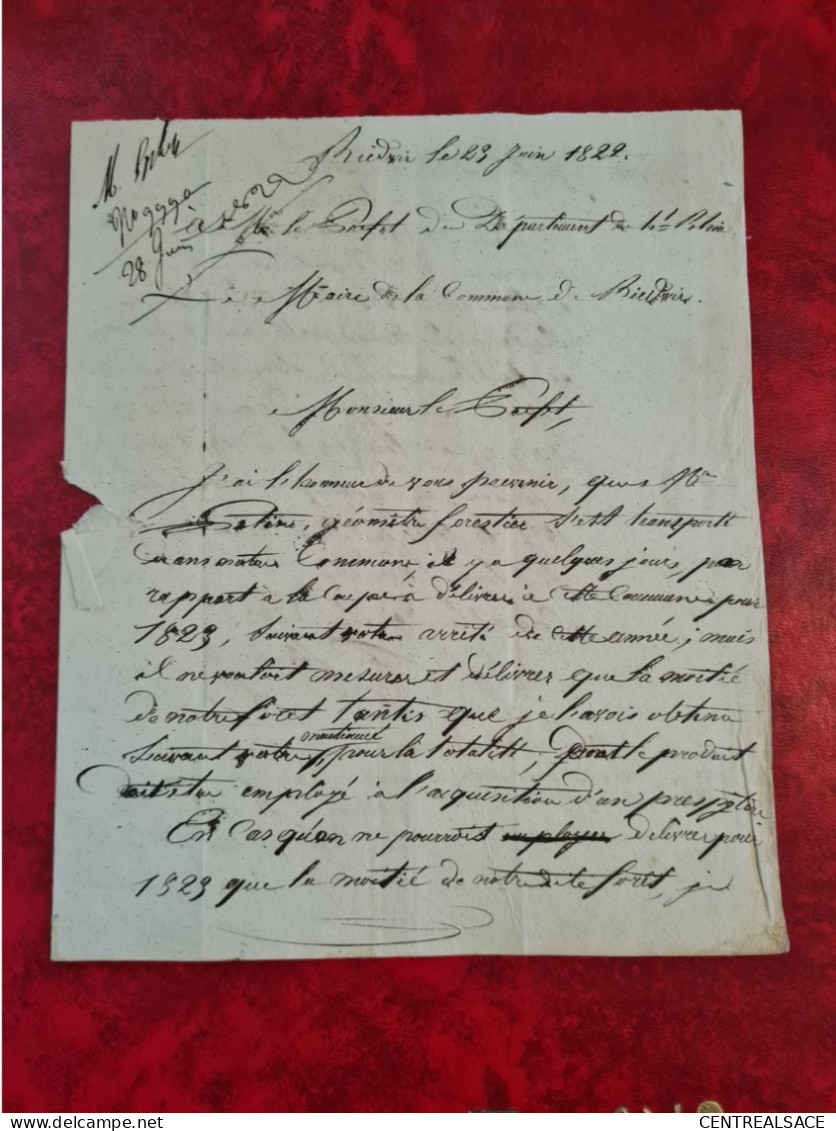 Riedwir le 23 Juin 1822.
M.
28 Juin
à Mr le Préfet du Département du ht Rhin
Le Maire de la Commune de Riedwir.
Monsieur le Préfet,
J'ai l'honneur de vous prevenir, que Mr
géomètre forestier s'est transporté
dans notre Commune il y a quelques jours, par
rapport a la Coupe à délivrer à cette Commune pour
1823, suivant votre arrêté de cette année; mais
il ne vouloit mesurer et délivrer que la moitié
de notre foret tantis que je l'avois obtenu
suivant votre pour la totalité, dont le produit
doit être employé à l'acquisition d'un presbytère.
En Cas qu'on ne pourroit employer délivrer pour
1823 que la moitié de notre dite forêt, je
CENTREALSACE